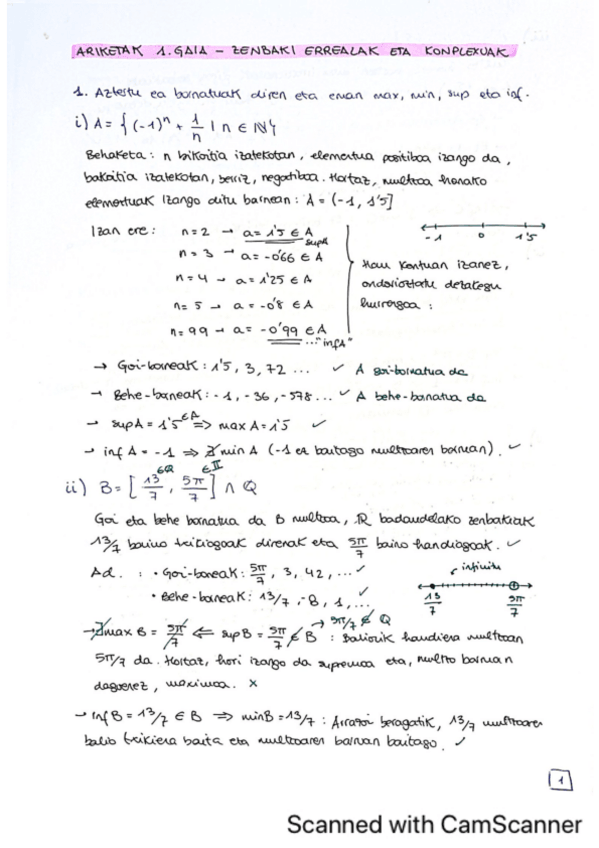 ARIKETAK 1. GAIA - ZENBAKI ERREALAK ETA KONPLEXUAK
1. Aztertu ea bornatuak diren eta eman max, min, sup eta inf.
i) A = { (-1)^n + 1/n | n ∈ N }
Behaketa: n bikoitia izatekotan, elementua positiboa izango da,
bakoitia izatekotan, berriz, negatiboa. Hortaz, multzoa honako
elementuak izango ditu barnean: A = (-1, 1'5]
Izan ere: n=2 → a = 1'5 ∈ A
supA
n=3 → a = -0'66 ∈ A
n=4 → a = 1'25 ∈ A
n=5 → a = -0'8 ∈ A
n=99 → a = -0'99 ∈ A
..."infA"
-1 0 1'5
Hau kontuan izanez,
ondorioztatu dezakegu
hurrengoa:
→ Goi-borneak: 1'5, 3, 72 ... ✓ A goi-bornatua da
→ Behe-borneak: -1, -36, -578... ✓ A behe-bornatua da
→ supA = 1'5 ∈A => max A = 1'5 ✓
→ inf A = -1 => ∄ min A (-1 ez baitago multzoaren barruan). ✓
ii) B = [ 13/7 ∈Q , 5π/7 ∈II ] ∩ Q
Goi eta behe bornatua da B multzoa, R badaudelako zenbakiak
13/7 baino txikiagoak direnak eta 5π/7 baino handiagoak. ✓
Ad.: • Goi-borneak: 5π/7, 3, 42, ... ✓
• Behe-borneak: 13/7, -8, 1, ... ✓
infinitu
13/7 5π/7
→ ∄ max B = 5π/7 <= supB = 5π/7 ∉ B → 5π/7 ∉ Q : Baliorik handiena multzoan
5π/7 da. Hortaz, hori izango da supremoa eta, multzo barruan
dagoenez, maximoa. x
→ infB = 13/7 ∈ B => minB = 13/7 : Arrazoi beragatik, 13/7 multzoaren
balio txikiena baita eta multzoaren barruan baitago. ✓
1
Scanned with CamScanner